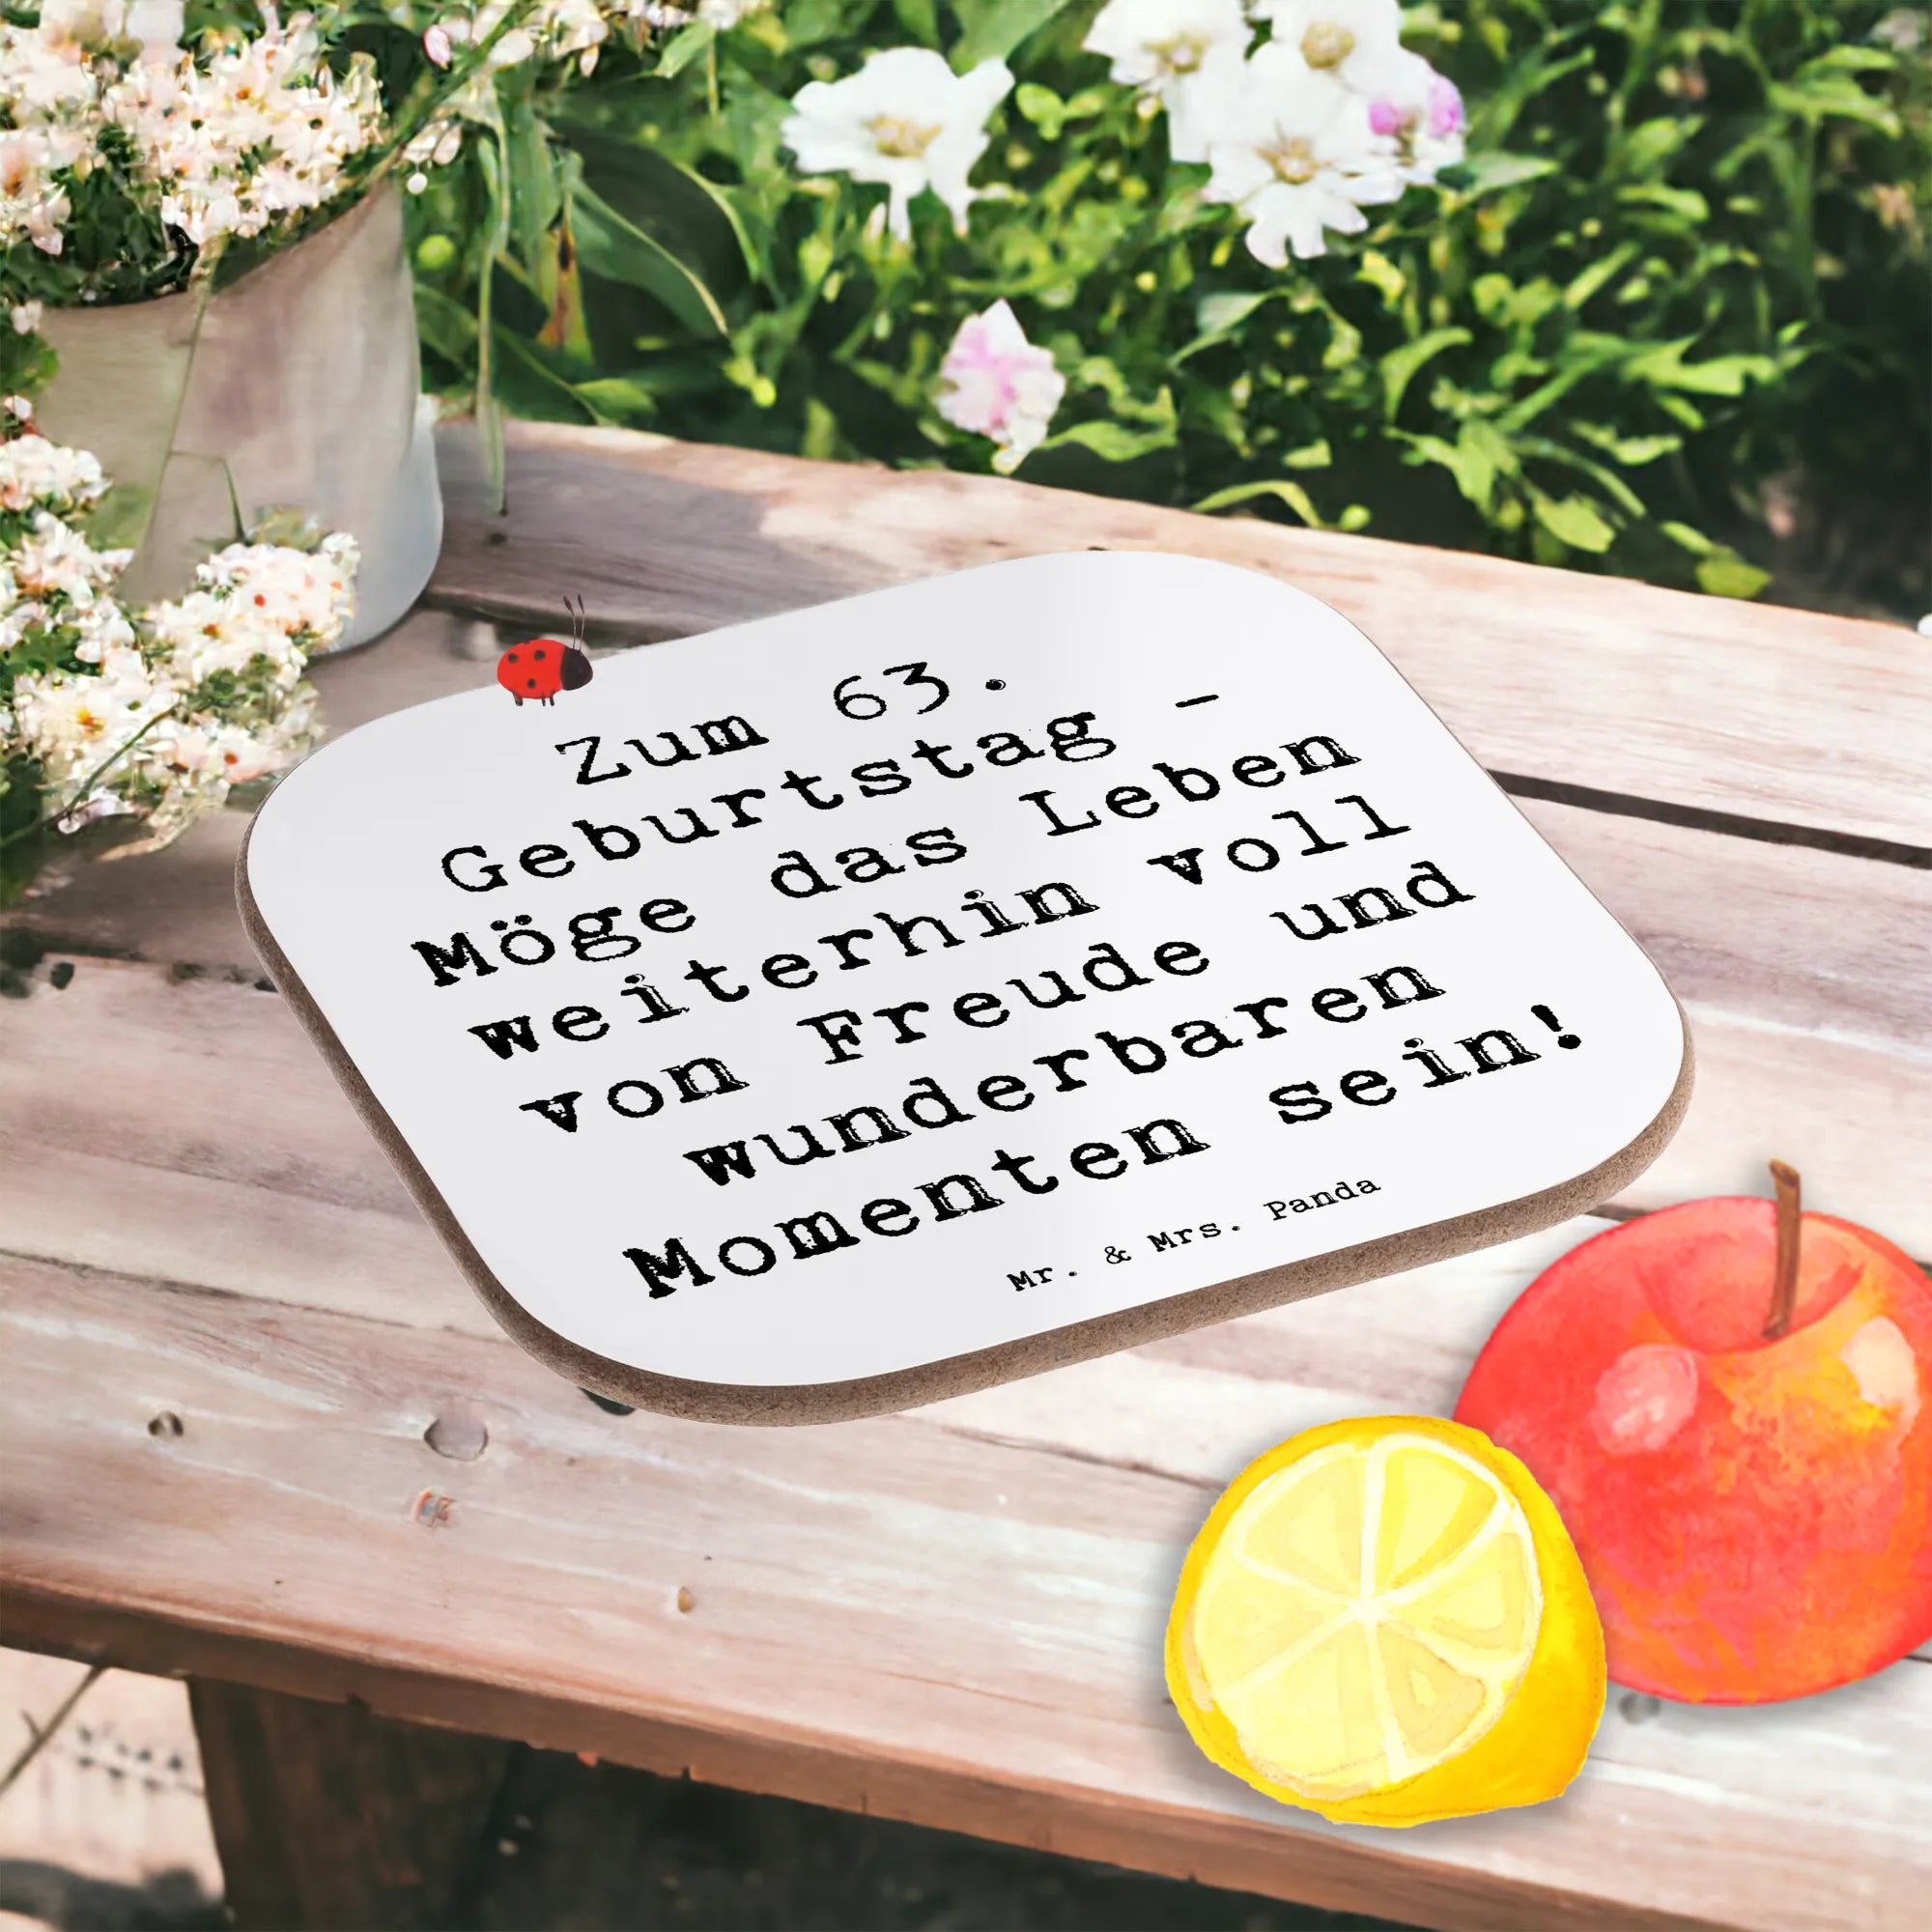 Zum 63.
Geburtstag -
Möge das Leben
weiterhin voll
von Freude und
wunderbaren
Momenten sein!
Mr. & Mrs. Panda